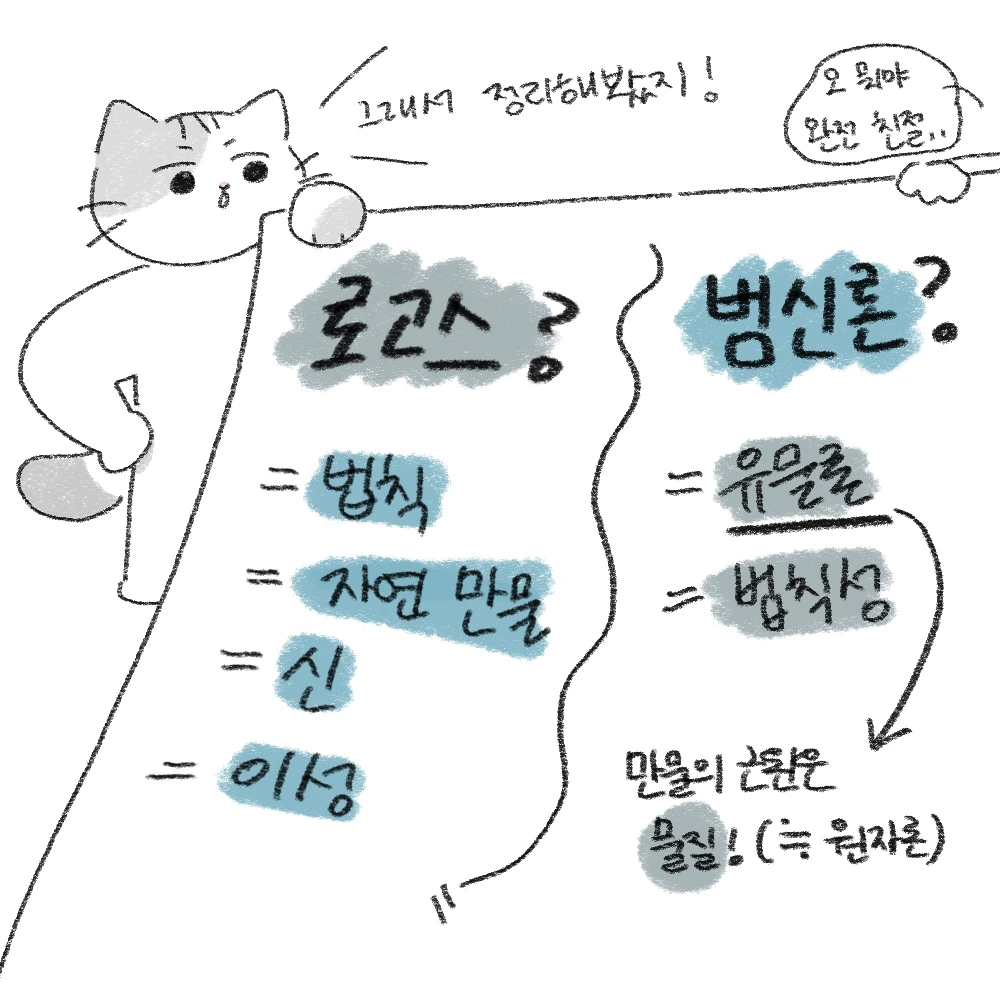 그래서 정리해봤지!
오 뭐야
완전 친절..
로고스?
= 법칙
= 자연 만물
= 신
= 이성
범신론?
= 유물론
= 법칙성
만물의 근원은
물질! (≒ 원자론)